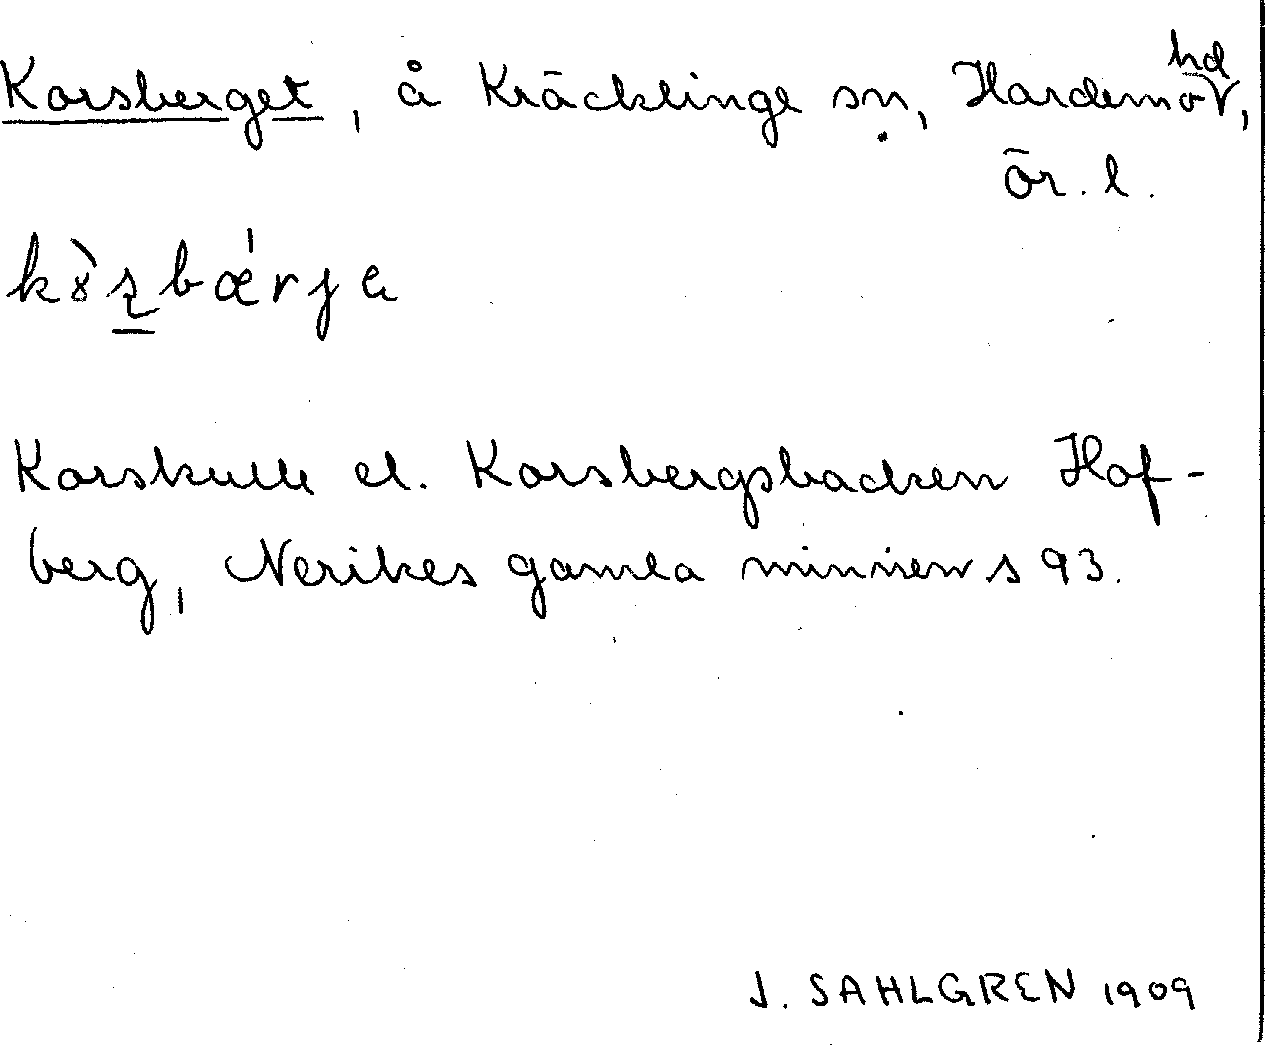 Korsberget, å Kräcklinge sn, Hardemo hd,
ör. l.
Korskulle el. Korsbergsbacken Hof-
berg, Nerikes gamla minnen s 93.
J. SAHLGREN 1909